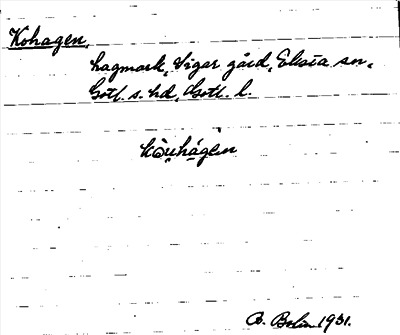 Kohagen,
hagmark, Vigar gård, Eksta sn,
Gotl. s. hd, Gotl. l.
kòu̯há̄gen
B. Bolin 1931.